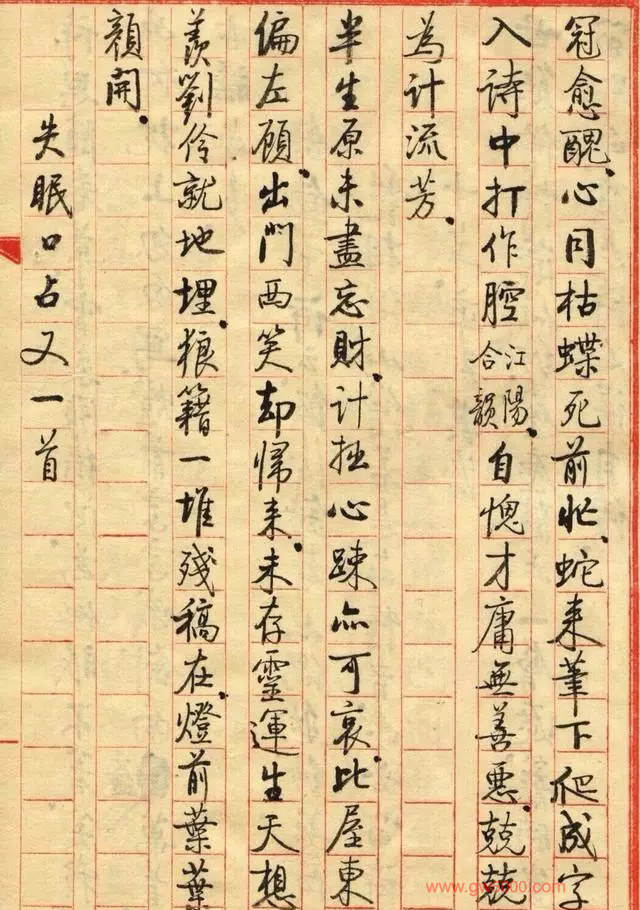 冠愈醜、心同枯蝶死前忙、蛇来筆下爬成字
入詩中打作腔合江韻陽、自愧才庸無善惡、兢兢
為計流芳、
半生原未盡忘財、計拙心疎亦可哀、比屋東
偏左顧、出門西笑却帰来、未存靈運生天想
羨劉伶就地埋、狼籍一堆殘稿在、燈前葉葉
顔開、
失眠口占又一首
www.gw3000.com